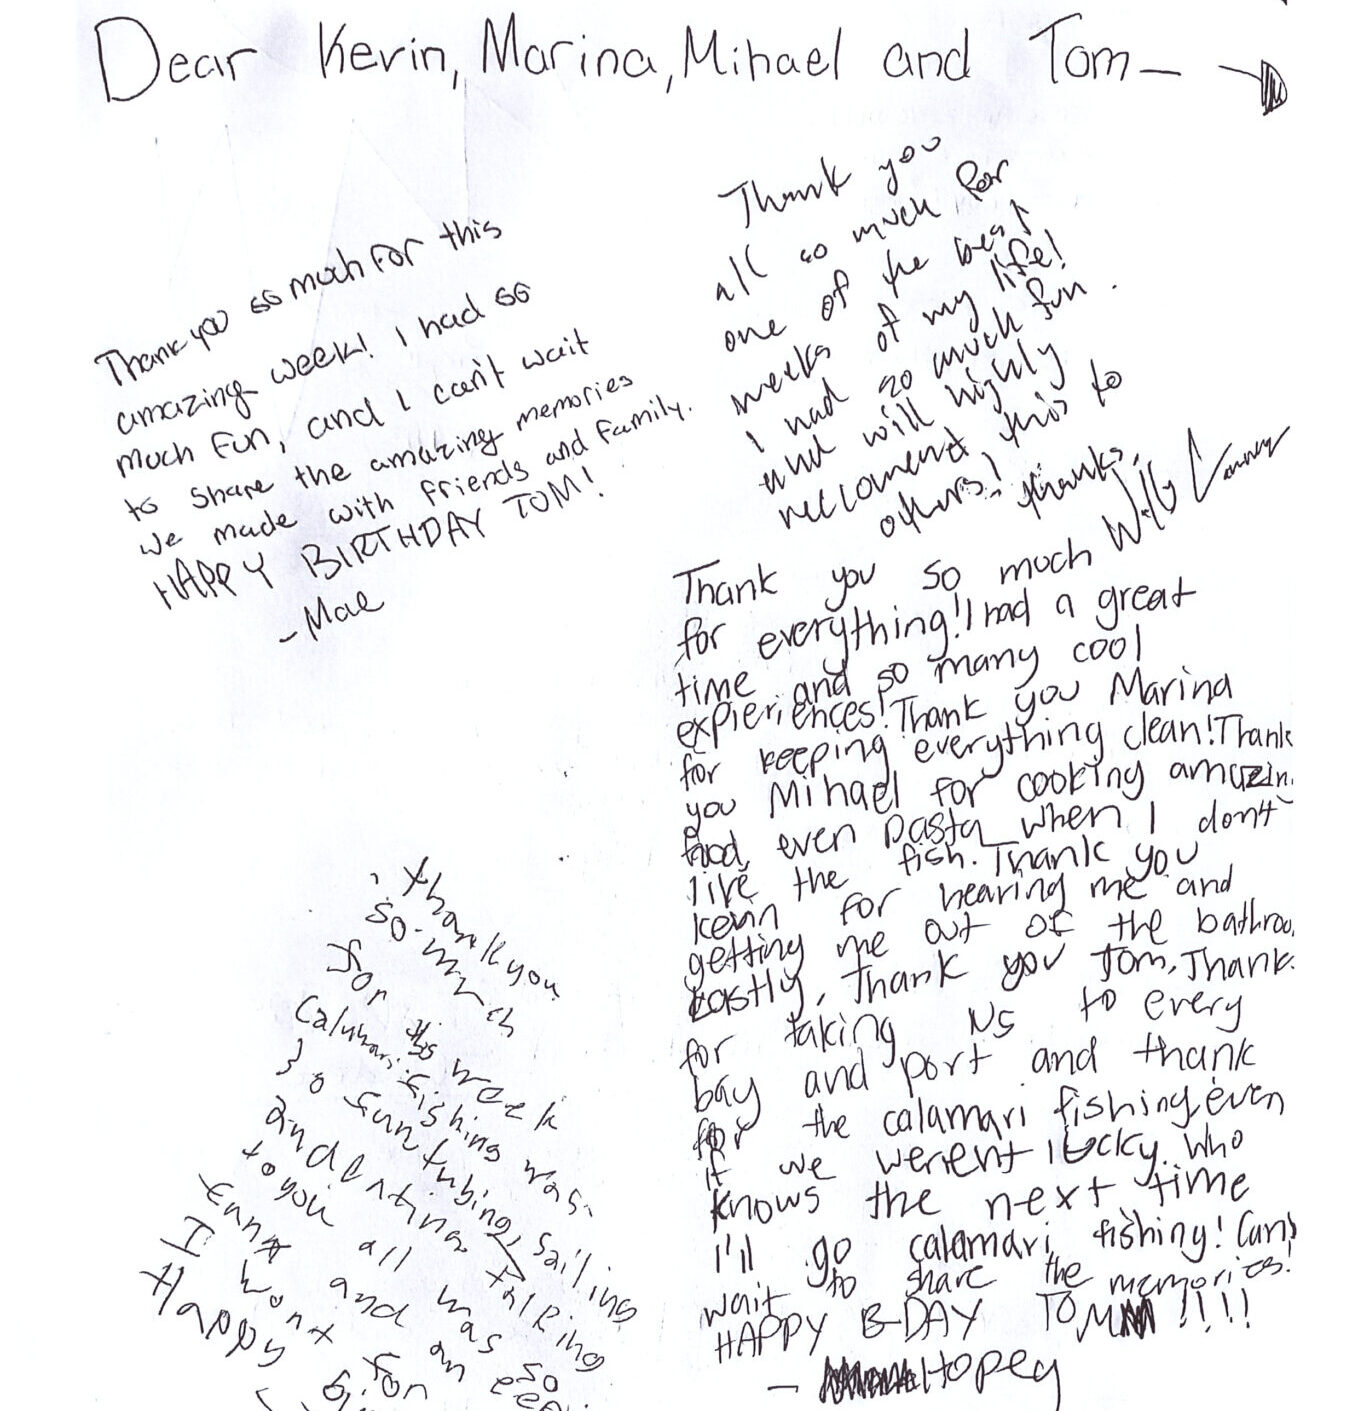 Dear Kevin, Marina, Mihael and Tom —
Thank you so much for this
amazing week! I had so
much fun, and I can't wait
to share the amazing memories
we made with friends and family.
HAPPY BIRTHDAY TOM!
- Mae
Thank you
all so much for
one of the best
weeks of my life!
I had so much fun.
and will highly
reccomend this to
others! thanks,
Willy
Thank you so much
for everything! I had a great
time and so many cool
expieriences! Thank you Marina
for keeping everything clean! Thank
you Mihael for cooking amazin
food, even pasta when I don't
like the fish. Thank you
Kevin for hearing me and
getting me out of the bathroo
Lastly, Thank you Tom, Thank
for taking us to every
bay and port and thank
for the calamari fishing, even
if we werent lucky. Who
knows the next time
I'll go calamari fishing! Can't
wait to share the memories!
HAPPY B-DAY TOM !!!!
- Hopey
Thank you
so much
for this week
Calamari fishing was
so fun tubing, sailing
and eating talking
to you all was so
funn and an
I wont for
Happy